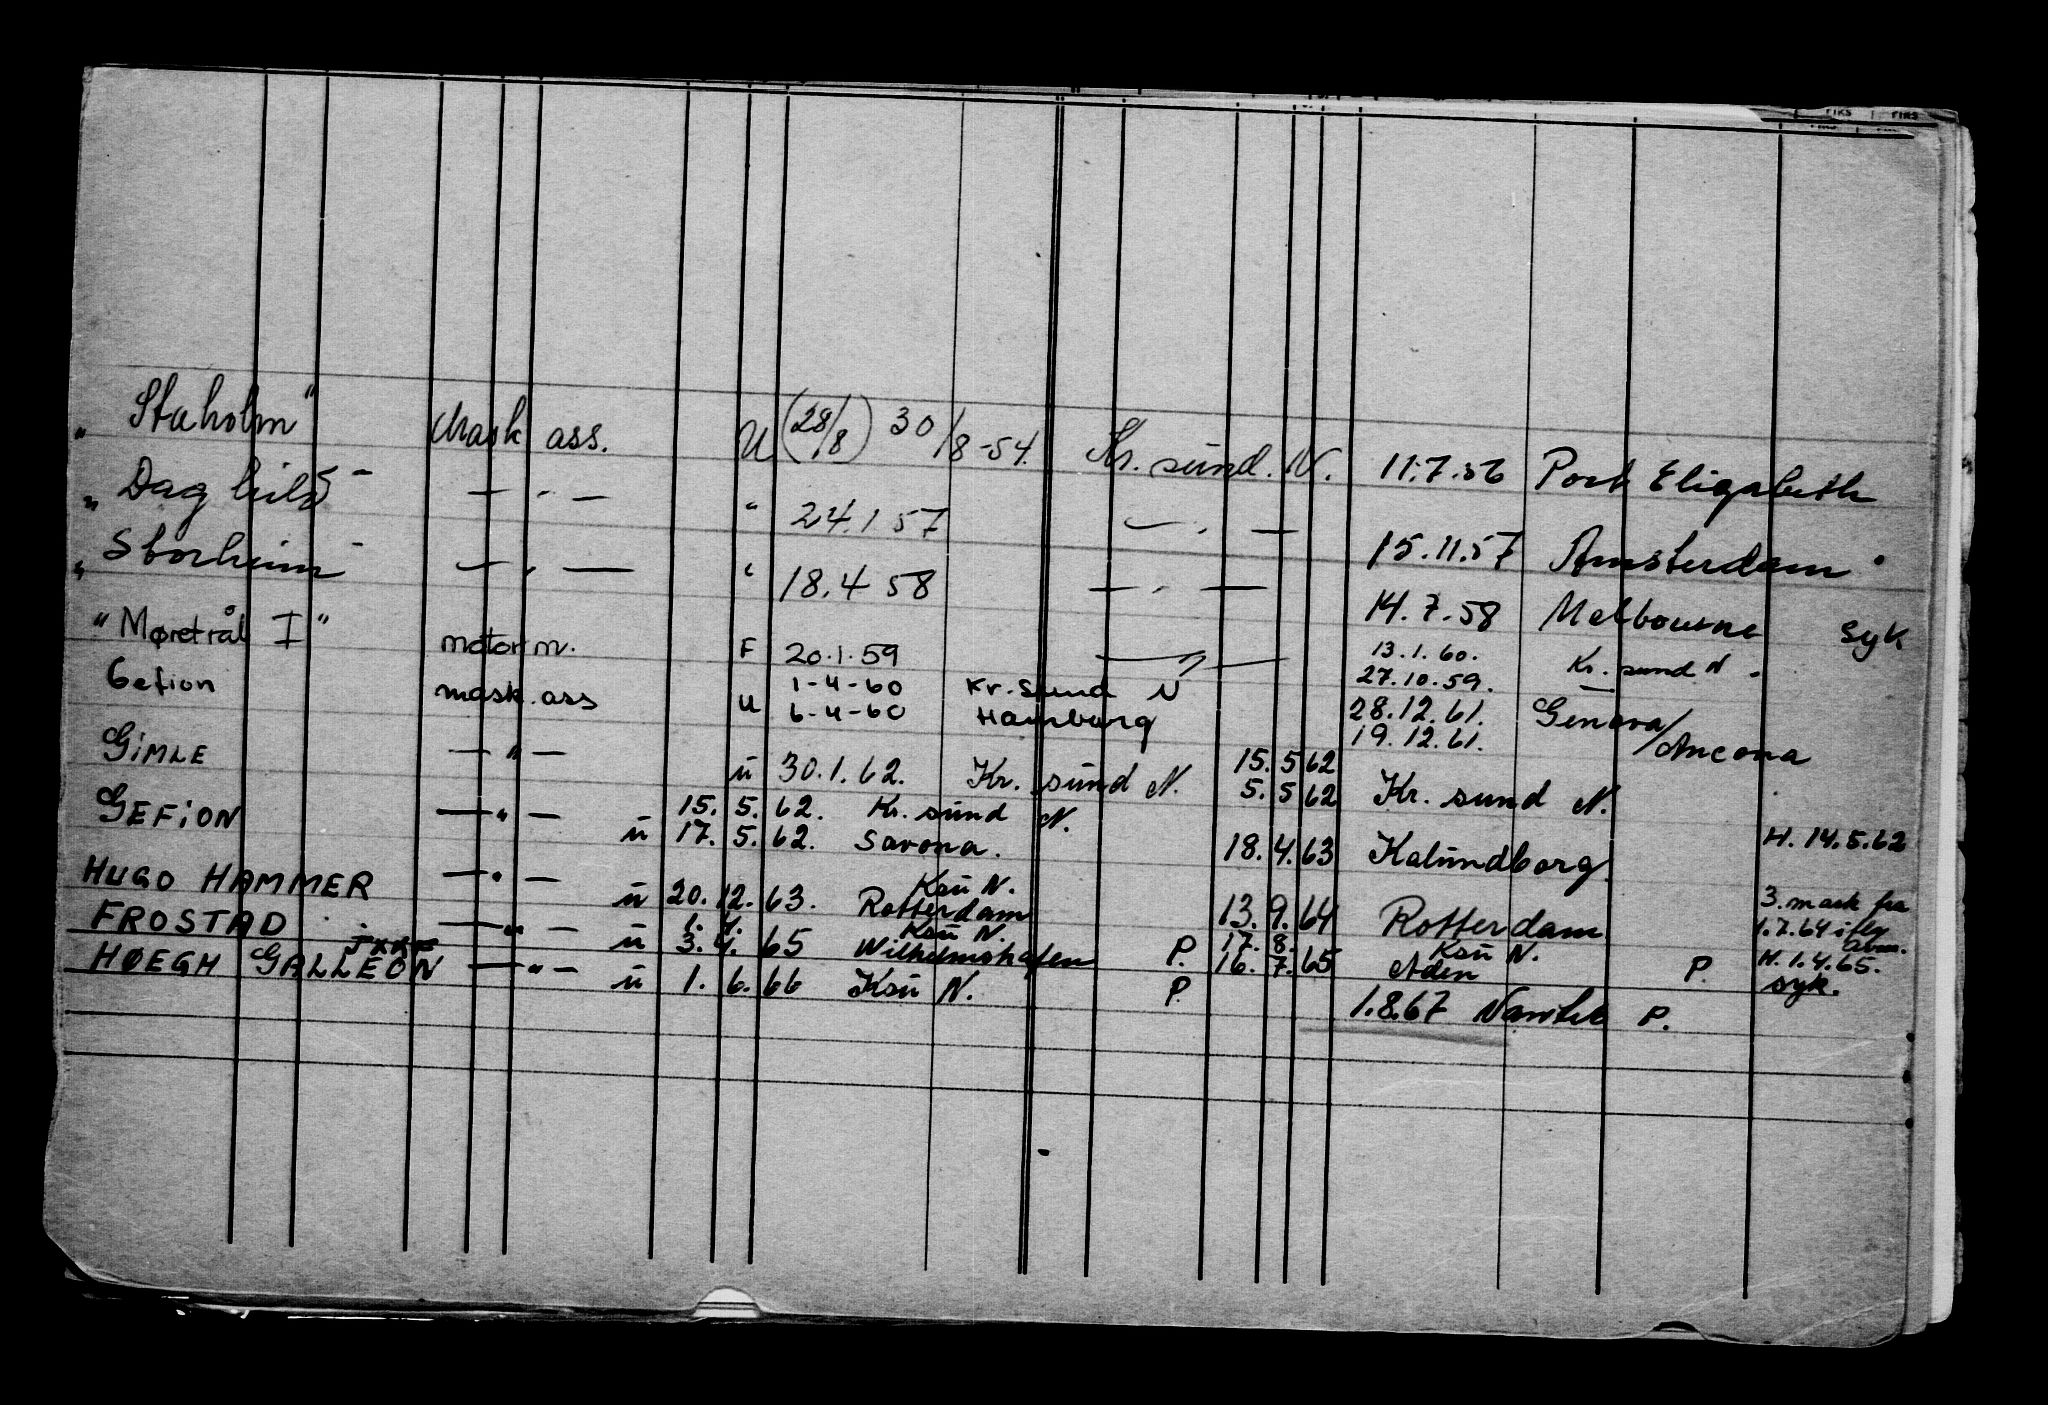 "Staholm" Mask ass. U (28/8) 30/8-54. Kr. sund. N. 11.7.56 Port Elizabeth
"Daghild" — " — " 24.1 57 — " — 15.11.57 Amsterdam
"Storheim" — " — " 18.4 58 — " — 14.7.58 Melbourne syk
"Møretrål I" motorm. F 20.1.59 — " — 13.1.60. Kr. sund N.
27.10.59. —
Gefion mask. ass U 1-4-60 Kr. Sund N 28.12.61. Genova/
6-4-60 Hamburg 19.12.61. Ancona
GIMLE — " — ü 30.1.62. Kr. sünd N. 15.5 62
5.5 62 Kr. sund N.
GEFION — " — 15.5.62. Kr. sünd N.
ü 17.5.62. Savona. 18.4.63 Kalundborg H. 14.5.62
HUGO HAMMER — " — Ksü N.
ü 20.12.63. Rotterdam 13.9.64 Rotterdam 3. mask fra
1.7.64 i flg
FROSTAD — " — 1.4. Ksü N. 17.8. Ksü N.
ü 3.4.65 Wilhelmshafen P. 16.7.65 Aden P. H. 1.4.65.
syk.
HØEGH GALLEON — " — ü 1.6.66 Ksü N. P. 1.8.67 P.